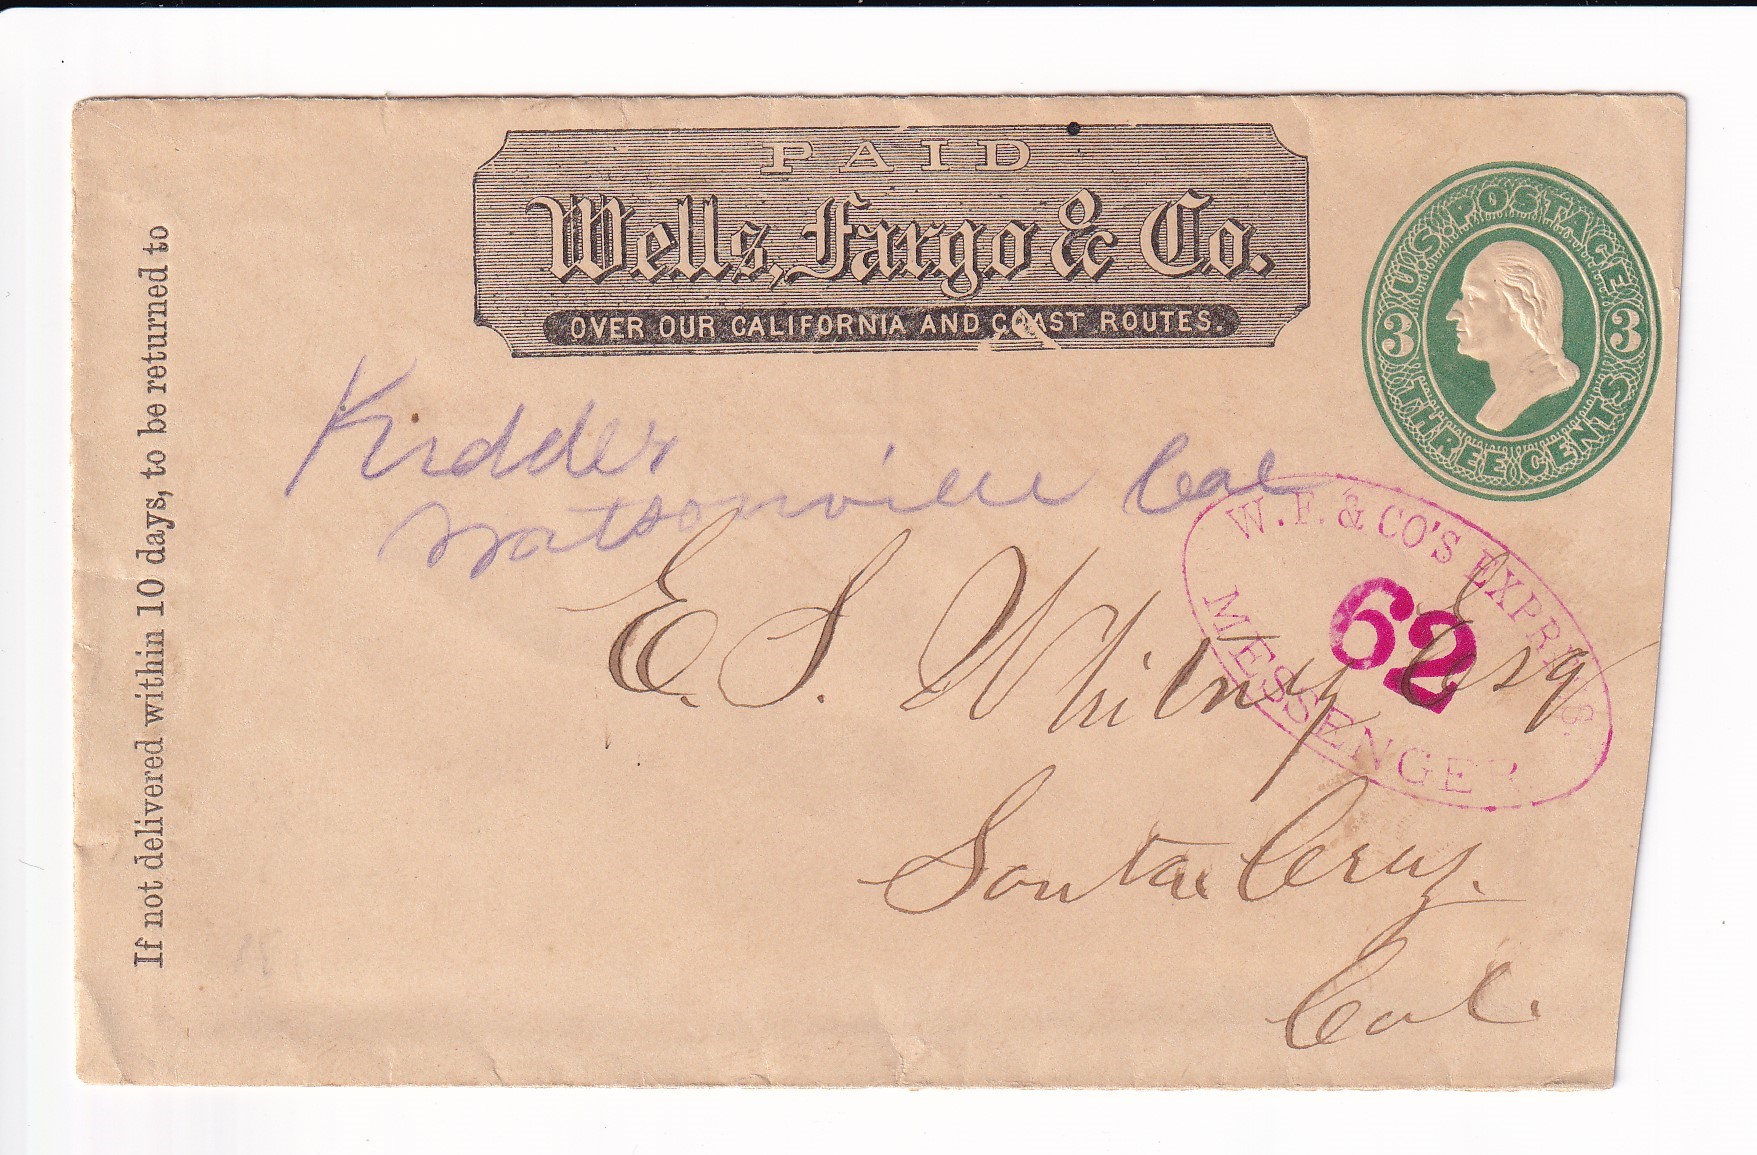 PAID
Wells, Fargo & Co.
OVER OUR CALIFORNIA AND COAST ROUTES.
U.S. POSTAGE
3 3
THREE CENTS
If not delivered within 10 days, to be returned to
Kidder
Watsonville Cal
W. F. & CO'S EXPRESS.
62
MESSENGER
E. S. Whitney Esq
Santa Cruz.
Cal.